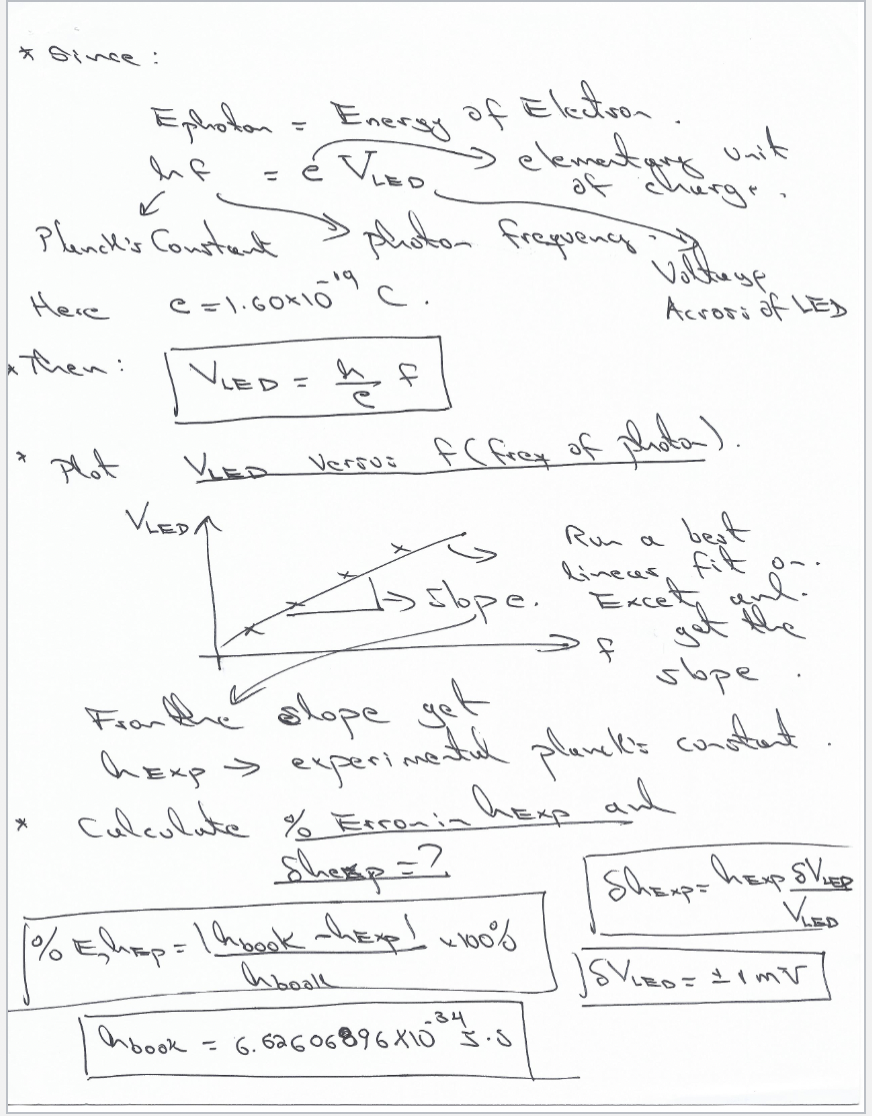 * Since :
Ephoton = Energy of Electron.
hf = e VLED → elementary unit of charge.
Planck's Constant → photon frequency.
Voltage
Across of LED
Here e = 1.60x10^-19 C.
* Then : VLED = h/e f
* Plot VLED versus f (freq of photon).
VLED
Run a best
linear fit on
Excel, and
→ slope.
get the
f
slope.
From the slope get
hExp → experimental planck's constant.
* Calculate % Error in hExp and
δhexp = ?
δhExp = hExp δVLED / VLED
% E, hExp = |hbook - hExp| / hbook x100%
δVLED = ± 1 mV
hbook = 6.62606896 x10^-34 J.s